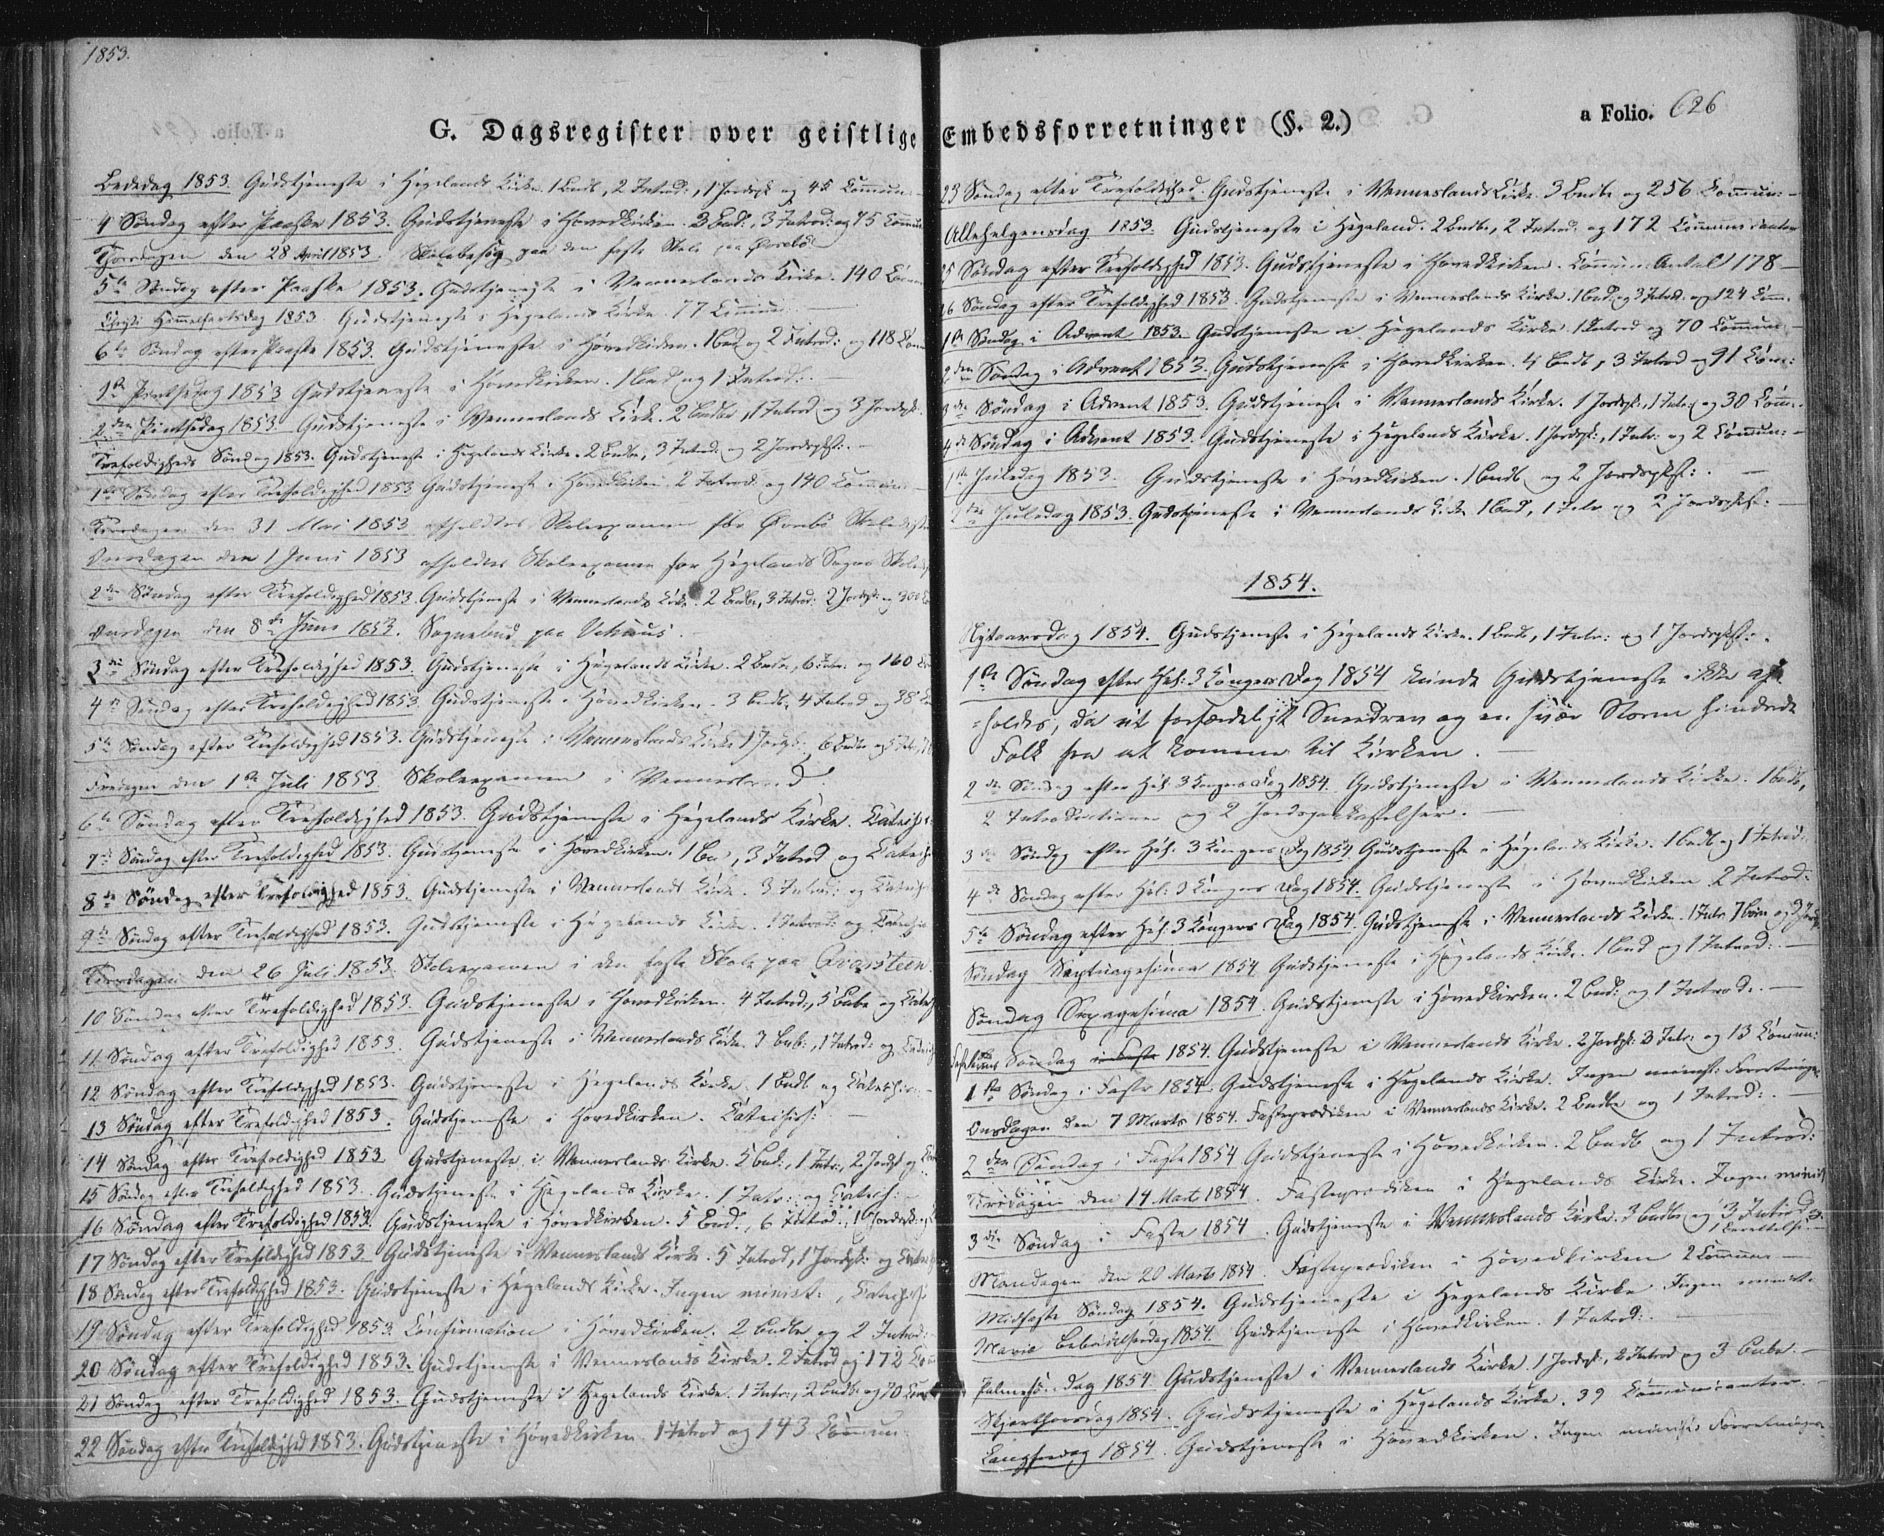 1853.
G. Dagsregister over geistlige Embedsforretninger (§. 2.)
a Folio. 626
Bededag 1853. Gudstjeneste i Hegelands Kirke. 1 Barnd, 2 Introd:, 1 Jordpk og 45 Commun:
4 Søndag efter Paaske 1853. Gudstjeneste i Hovedkirken. 3 Bad:, 3 Introd: og 75 Commun
Torsdagen den 28 April 1853. Skolebesøg paa den faste Skole paa Øvrebø
5te Søndag efter Paaske 1853. Gudstjeneste i Vennerlands Kirke. 140 Com
Christi Himmelfartsdag 1853. Gudstjeneste i Hegelands Kirke. 77 Commun.
6te Søndag efter Paaske 1853. Gudstjeneste i Hovedkirken. 1 Bad og 2 Introd: og 118 Com
1ste Pintsedag 1853 Gudstjeneste i Hovedkirken. 1 Bad og 1 Introd:. —
2den Pintsedag 1853 Gudstjeneste i Vennerlands Kirke. 2 Badb, 1 Introd og 3 Jordpk.
Trefoldigheds Søndag 1853. Gudstjeneste i Hegelands Kirke. 2 Badb, 3 Introd: og 2 Jordspkf:. —
1ste Søndag efter Trefoldighed 1853 Gudstjeneste i Hovedkirken 2 Introd: og 140 Commun. —
Tirsdagen den 31 Mai 1853 afholdtes Skoleexamen for Øvrebø Skoledist
Onsdagen den 1 Juni 1853 afholdtes Skoleexamen for Hegelands Sogns Skole
2den Søndag efter Trefoldighed 1853. Gudstjeneste i Vennerlands Kirke. 2 Badb, 3 Introd: 2 Jordpk: og 300
Onsdagen den 8de Juni 1853. Sognebud paa
3die Søndag efter Trefoldighed 1853. Gudstjeneste i Hegelands Kirke. 2 Badb, 6 Intr: og 160
4de Søndag efter Trefoldighed 1853. Gudstjeneste i Hovedkirken. 3 Badb, 4 Introd og 38
5te Søndag efter Trefoldighed 1853. Gudstjeneste i Vennerslands Kirke 1 Jordpk:, 6 Badb og 5 Intr.
Fredagen den 1ste Juli 1853. Skoleexamen i Vennersland.
6te Søndag efter Trefoldighed 1853. Gudstjeneste i Hegelands Kirke. Catechis:
7de Søndag efter Trefoldighed 1853. Gudstjeneste i Hovedkirken. 1 Ba, 3 Introd og Catechi
8de Søndag efter Trefoldighed 1853. Gudstjeneste i Vennerlands Kirke. 3 Introd: og Catechi
9de Søndag efter Trefoldighed 1853. Gudstjeneste i Hegelands Kirke. 1 Introd: og Catechis
Tirsdagen den 26 Juli 1853. Skoleexamen i den faste Skole paa Qvarsteen.
10 Søndag efter Trefoldighed 1853. Gudstjeneste i Hovedkirken. 4 Introd:, 5 Badb og Catech
11 Søndag efter Trefoldighed 1853. Gudstjeneste i Vennerslands Kirke. 3 Badb:, 1 Introd: og Catech
12 Søndag efter Trefoldighed 1853. Gudstjeneste i Hegelands Kirke. 1 Badb og Catechis. —
13 Søndag efter Trefoldighed 1853. Gudstjeneste i Hovedkirken. Catechis:
14 Søndag efter Trefoldighed 1853. Gudstjeneste i Vennerslands Kirke. 5 Bad:, 1 Intr:, 2 Jordpk og
15 Søndag efter Trefoldighed 1853. Gudstjeneste i Hegelands Kirke. 1 Intr: og Catech: —
16 Søndag efter Trefoldighed 1853. Gudstjeneste i Hovedkirken. 5 Bad., 6 Introd:, 1 Jordspk: og
17 Søndag efter Trefoldighed 1853. Gudstjeneste i Vennerlands Kirke. 5 Introd, 1 Jordpk: og Catech
18 Søndag efter Trefoldighed 1853. Gudstjeneste i Hegelands Kirke. Ingen minist:, Catechis:
19 Søndag efter Trefoldighed 1853. Confirmation i Hovedkirken. 2 Badb og 2 Introd:
20 Søndag efter Trefoldighed 1853. Gudstjeneste i Vennerslands Kirke. 2 Introd og 172 Co
21 Søndag efter Trefoldighed 1853. Gudstjeneste i Hegelands Kirke. 1 Intr:, 2 Badb og 70 Com
22 Søndag efter Trefoldighed 1853. Gudstjeneste i Hovedkirken. 1 Introd og 143 Commun
23 Søndag efter Trefoldighed. Gudstjeneste i Vennerslands Kirke. 3 Badb og 256 Commun: —
Allehelgensdag 1853. Gudstjeneste i Hegeland. 2 Badb, 2 Introd. og 172 Communicanter
25 Søndag efter Trefoldighed 1853. Gudstjeneste i Hovedkirken. Commun Antal 178 —
26 Søndag efter Trefoldighed 1853. Gudstjeneste i Vennerslands Kirke. 1 Bad, 3 Introd. og 124 Com.
1ste Søndag i Advent 1853. Gudstjeneste i Hegelands Kirke. 1 Introd og 70 Commun —
2den Søndag i Advent 1853. Gudstjeneste i Hovedkirken. 4 Badb, 3 Introd og 91 Com:
3die Søndag i Advent 1853. Gudstjeneste i Vennerslands Kirke. 1 Jordpk:, 1 Intr: og 30 Com.
4de Søndag i Advent 1853. Gudstjeneste i Hegelands Kirke. 1 Jordpk:, 1 Intr: og 2 Commun: —
1ste Juledag 1853. Gudstjeneste i Hovedkirken. 1 Badb og 2 Jordspkf:. —
2den Juledag 1853. Gudstjeneste i Vennerlands Kirke 1 Bad, 1 Intr og 2 Jordspkf: —
1854.
Nytaarsdag 1854. Gudstjeneste i Hegelands Kirke. 1 Badb, 1 Intr: og 1 Jordspkf:.
1ste Søndag efter Hel: 3 Kongers Dag 1854 kunde Gudstjeneste ikke af-
=holdes, da et forfærdeligt Sneedrev og en svær Storm hindrede
Folk fra at komme til Kirken. —
2den Søndag efter Hel: 3 Kongers Dag 1854. Gudstjeneste i Vennerlands Kirke. 1 Badb,
2 Introductioner og 2 Jordspaakastelser. —
3die Søndag efter Hel: 3 Kongers Dag 1854. Gudstjeneste i Hegelands Kirke. 1 Badb og 1 Introd:
4de Søndag efter Hel: 3 Kongers Dag 1854. Gudstjeneste i Hovedkirken 2 Introd:
5te Søndag efter Hel: 3 Kongers Dag 1854. Gudstjeneste i Vennerslands Kirke. 1 Intr 7 Børn og 3 Jordpk
Søndag Septuagesima 1854 Gudstjeneste i Hegelands Kirke. 1 Bad og 1 Introd:. —
Søndag Sexagesima 1854. Gudstjeneste i Hovedkirken. 2 Bad: og 1 Introd:. —
Fastelavns Søndag i Faste 1854. Gudstjeneste i Vennerslands Kirke. 2 Jordpk: 3 Intr: og 13 Commun:
1ste Søndag i Faste 1854. Gudstjeneste i Hegelands Kirke. Ingen minist: Forretninger
Onsdagen den 7 Marts 1854. Fasteprædiken i Vennerlands Kirke. 2 Badb og 1 Introd:. —
2den Søndag i Faste 1854 Gudstjeneste i Hovedkirken. 2 Badb og 1 Introd:
Tirsdagen den 14 Marts 1854. Fasteprædiken i Hegelands Kirke. Ingen minist
3die Søndag i Faste 1854. Gudstjeneste i Vennerslands Kirke. 3 Badb og 3 Introd
Mandagen den 20 Marts 1854. Fasteprædiken i Hovedkirken 2 Commun —
Midfaste Søndag 1854. Gudstjeneste i Hegelands Kirke Ingen minist.
Mariæ Bebudelsesdag 1854. Gudstjeneste i Hovedkirken. 1 Introd:. —
Palmesøndag 1854. Gudstjeneste i Vennerlands Kirke. 1 Jordpk, 2 Introd og 3 Badb. —
Skjærthorsdag 1854. Gudstjeneste i Hegelands Kirke. 39 Communicanter. —
Langfredag 1854. Gudstjeneste i Hovedkirken. Ingen minist: Forretninger